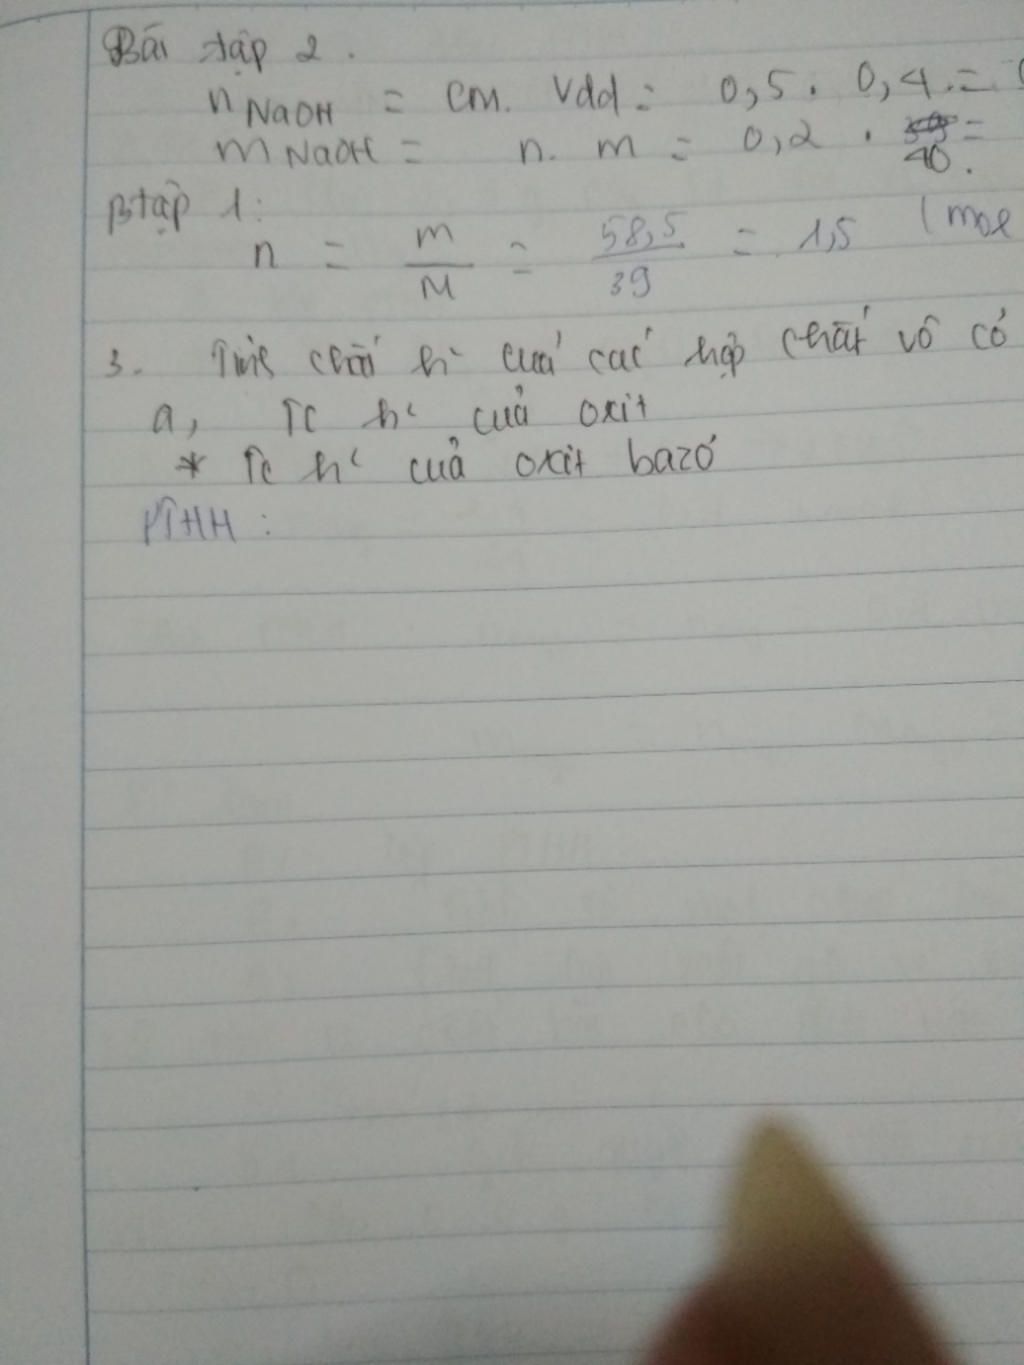 Bài tập 2.
n NaOH = CM. Vdd = 0,5 . 0,4 =
m NaOH = n. m = 0,2 . 40. =
Btập 1:
n = m/M = 58,5/39 = 1,5 (mol
3. Tính chất h² của các hợp chất vô cơ
a, TC h² của oxit
* TC h² của oxit bazơ
PTHH :